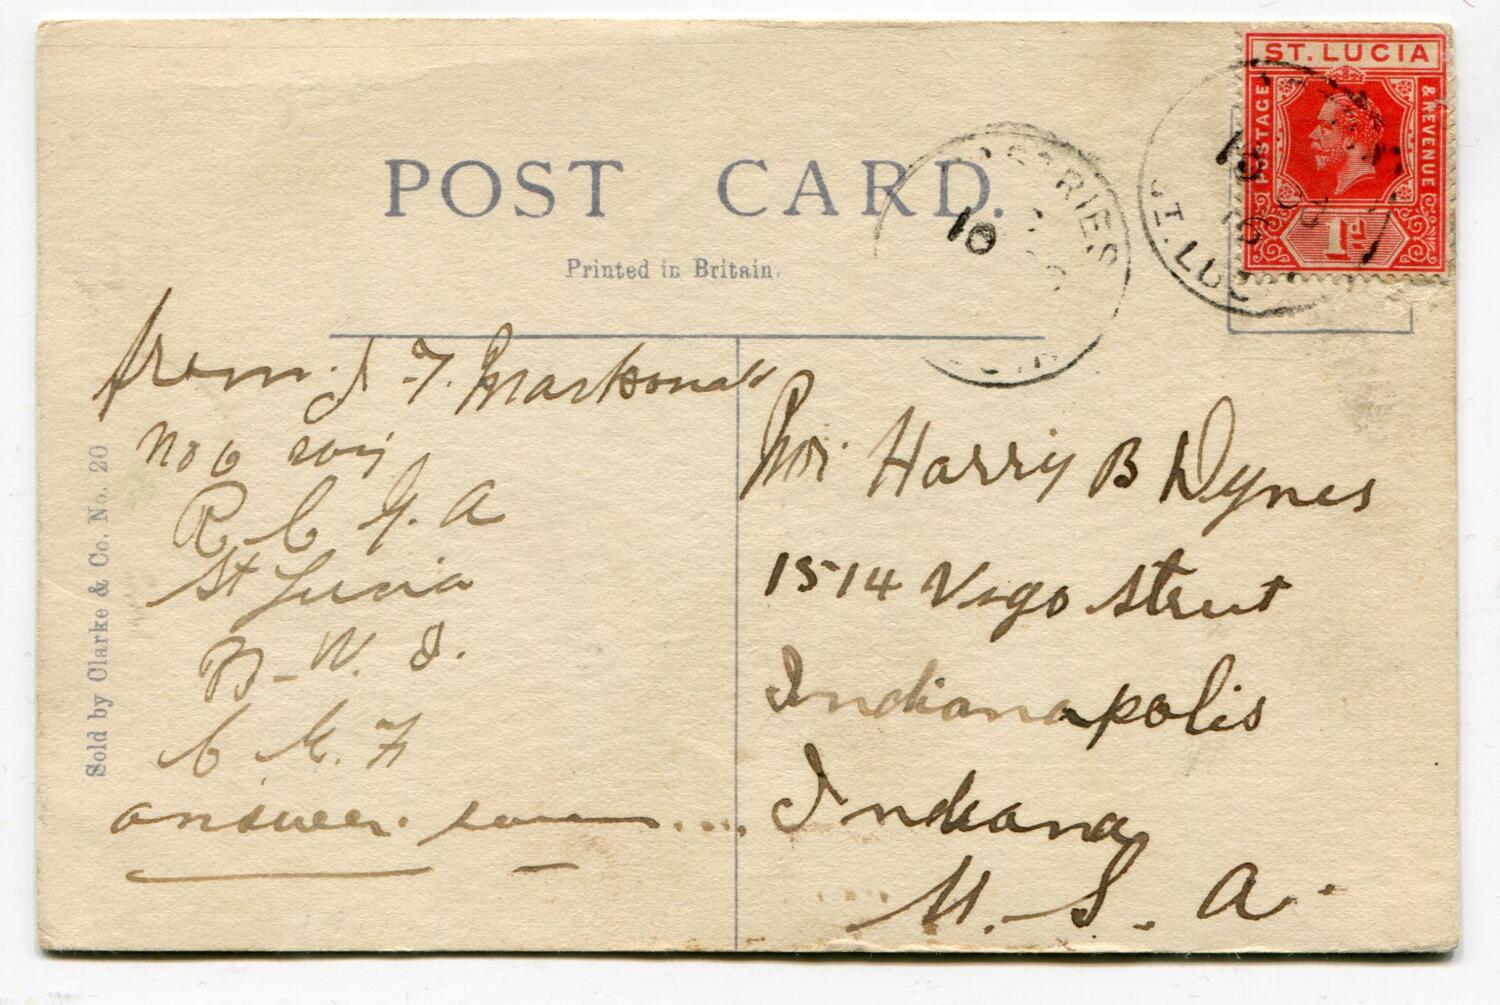 POST CARD.
Printed in Britain.
ST. LUCIA
POSTAGE
& REVENUE
1d
CASTRIES
10
ST. LUC
19
from J. F.
No 6
R C G. A
St Lucia
B. W. I.
C E. F
answer soon....
Mr Harry B Dynes
1514 Vigo Street
Indianapolis
Indiana
U. S. A.
Sold by Clarke & Co. No. 20